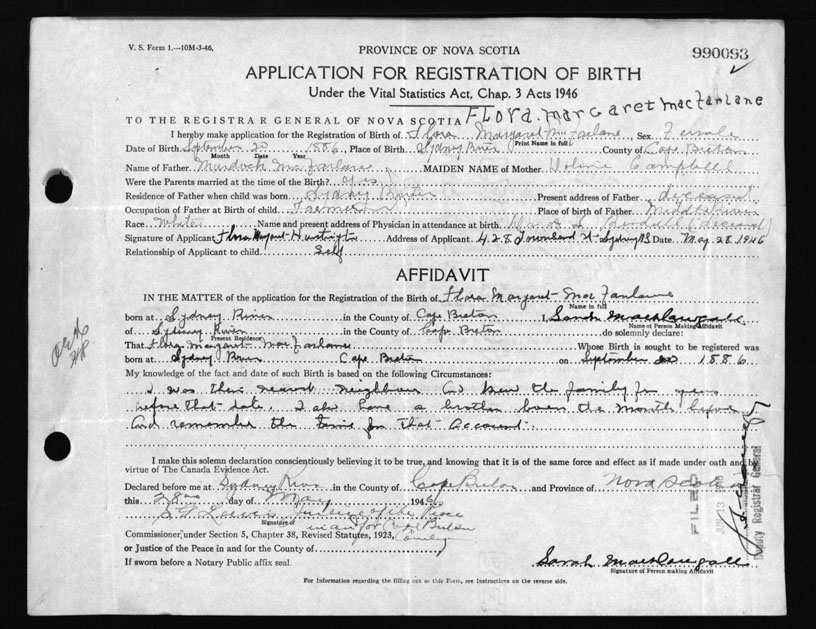 V. S. Form 1.—10M-3-46,
PROVINCE OF NOVA SCOTIA
990093
APPLICATION FOR REGISTRATION OF BIRTH
Under the Vital Statistics Act, Chap. 3 Acts 1946
FLORA. Margaret MacFarlane
TO THE REGISTRAR GENERAL OF NOVA SCOTIA
I hereby make application for the Registration of Birth of Flora Margaret MacFarlane, Sex Female
Print Name in full
Date of Birth September 20 1886, Place of Birth Sydney River County of Cape Breton
Month Date Year
Name of Father Murdoch MacFarlane MAIDEN NAME of Mother Campbell
Were the Parents married at the time of the Birth? yes
Residence of Father when child was born Sydney River Present address of Father deceased
Occupation of Father at Birth of child Place of birth of Father Middle River
Race White Name and present address of Physician in attendance at birth (deceased)
Signature of Applicant Flora Margaret Address of Applicant 428 Townsend St Sydney NS Date May 28 1946
Relationship of Applicant to child Self
AFFIDAVIT
IN THE MATTER of the application for the Registration of Birth of Flora Margaret MacFarlane
Name in full
born at Sydney River in the County of Cape Breton I, Sarah MacDougall
Name of Person Making Affidavit
of Sydney River in the County of Cape Breton do solemnly declare:
Present Residence
That Flora Margaret MacFarlane Whose Birth is sought to be registered was
born at Sydney River Cape Breton on September 20 1886
My knowledge of the fact and date of such Birth is based on the following Circumstances:
I was their nearest neighbour and knew the family for years
before that date. I also have a brother born the month before
and remember the time for that account.
I make this solemn declaration conscientiously believing it to be true, and knowing that it is of the same force and effect as if made under oath and by
virtue of The Canada Evidence Act.
Declared before me at Sydney River in the County of Cape Breton and Province of Nova Scotia
this 28th day of May 1946
Justice of the Peace
Signature of
in and for Cape Breton
Commissioner, under Section 5, Chapter 38, Revised Statutes, 1923, County
or Justice of the Peace in and for the County of
If sworn before a Notary Public affix seal.
Sarah MacDougall
Signature of Person making Affidavit
For Information regarding the filling out of this Form, see Instructions on the reverse side.
FILED
JUN 13
Deputy Registrar General